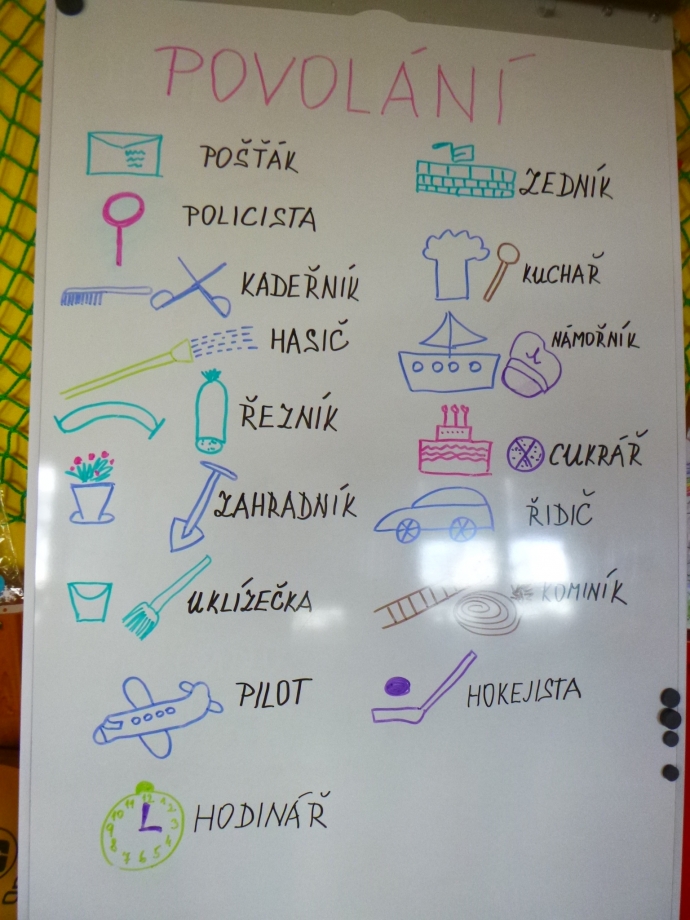 POVOLÁNÍ
POŠŤÁK
POLICISTA
KADEŘNÍK
HASIČ
ŘEZNÍK
ZAHRADNÍK
UKLÍZEČKA
PILOT
12
1
2
3
4
5
6
7
8
9
10
11
HODINÁŘ
ZEDNÍK
KUCHAŘ
NÁMOŘNÍK
CUKRÁŘ
ŘIDIČ
KOMINÍK
HOKEJISTA